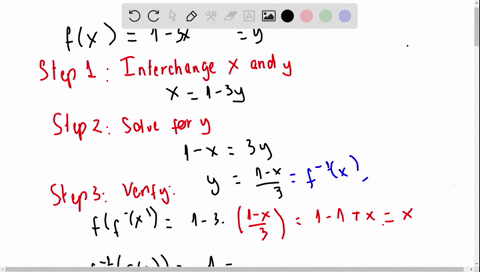 f(x) = 1-3x = y
Step 1: Interchange x and y
x = 1-3y
Step 2: Solve for y
1-x = 3y
y = \frac{1-x}{3} = f^{-1}(x)
Step 3: Verify:
f(f^{-1}(x)) = 1-3. (\frac{1-x}{3}) = 1-1+x = x
f^{-1}(f(x)) = 1-